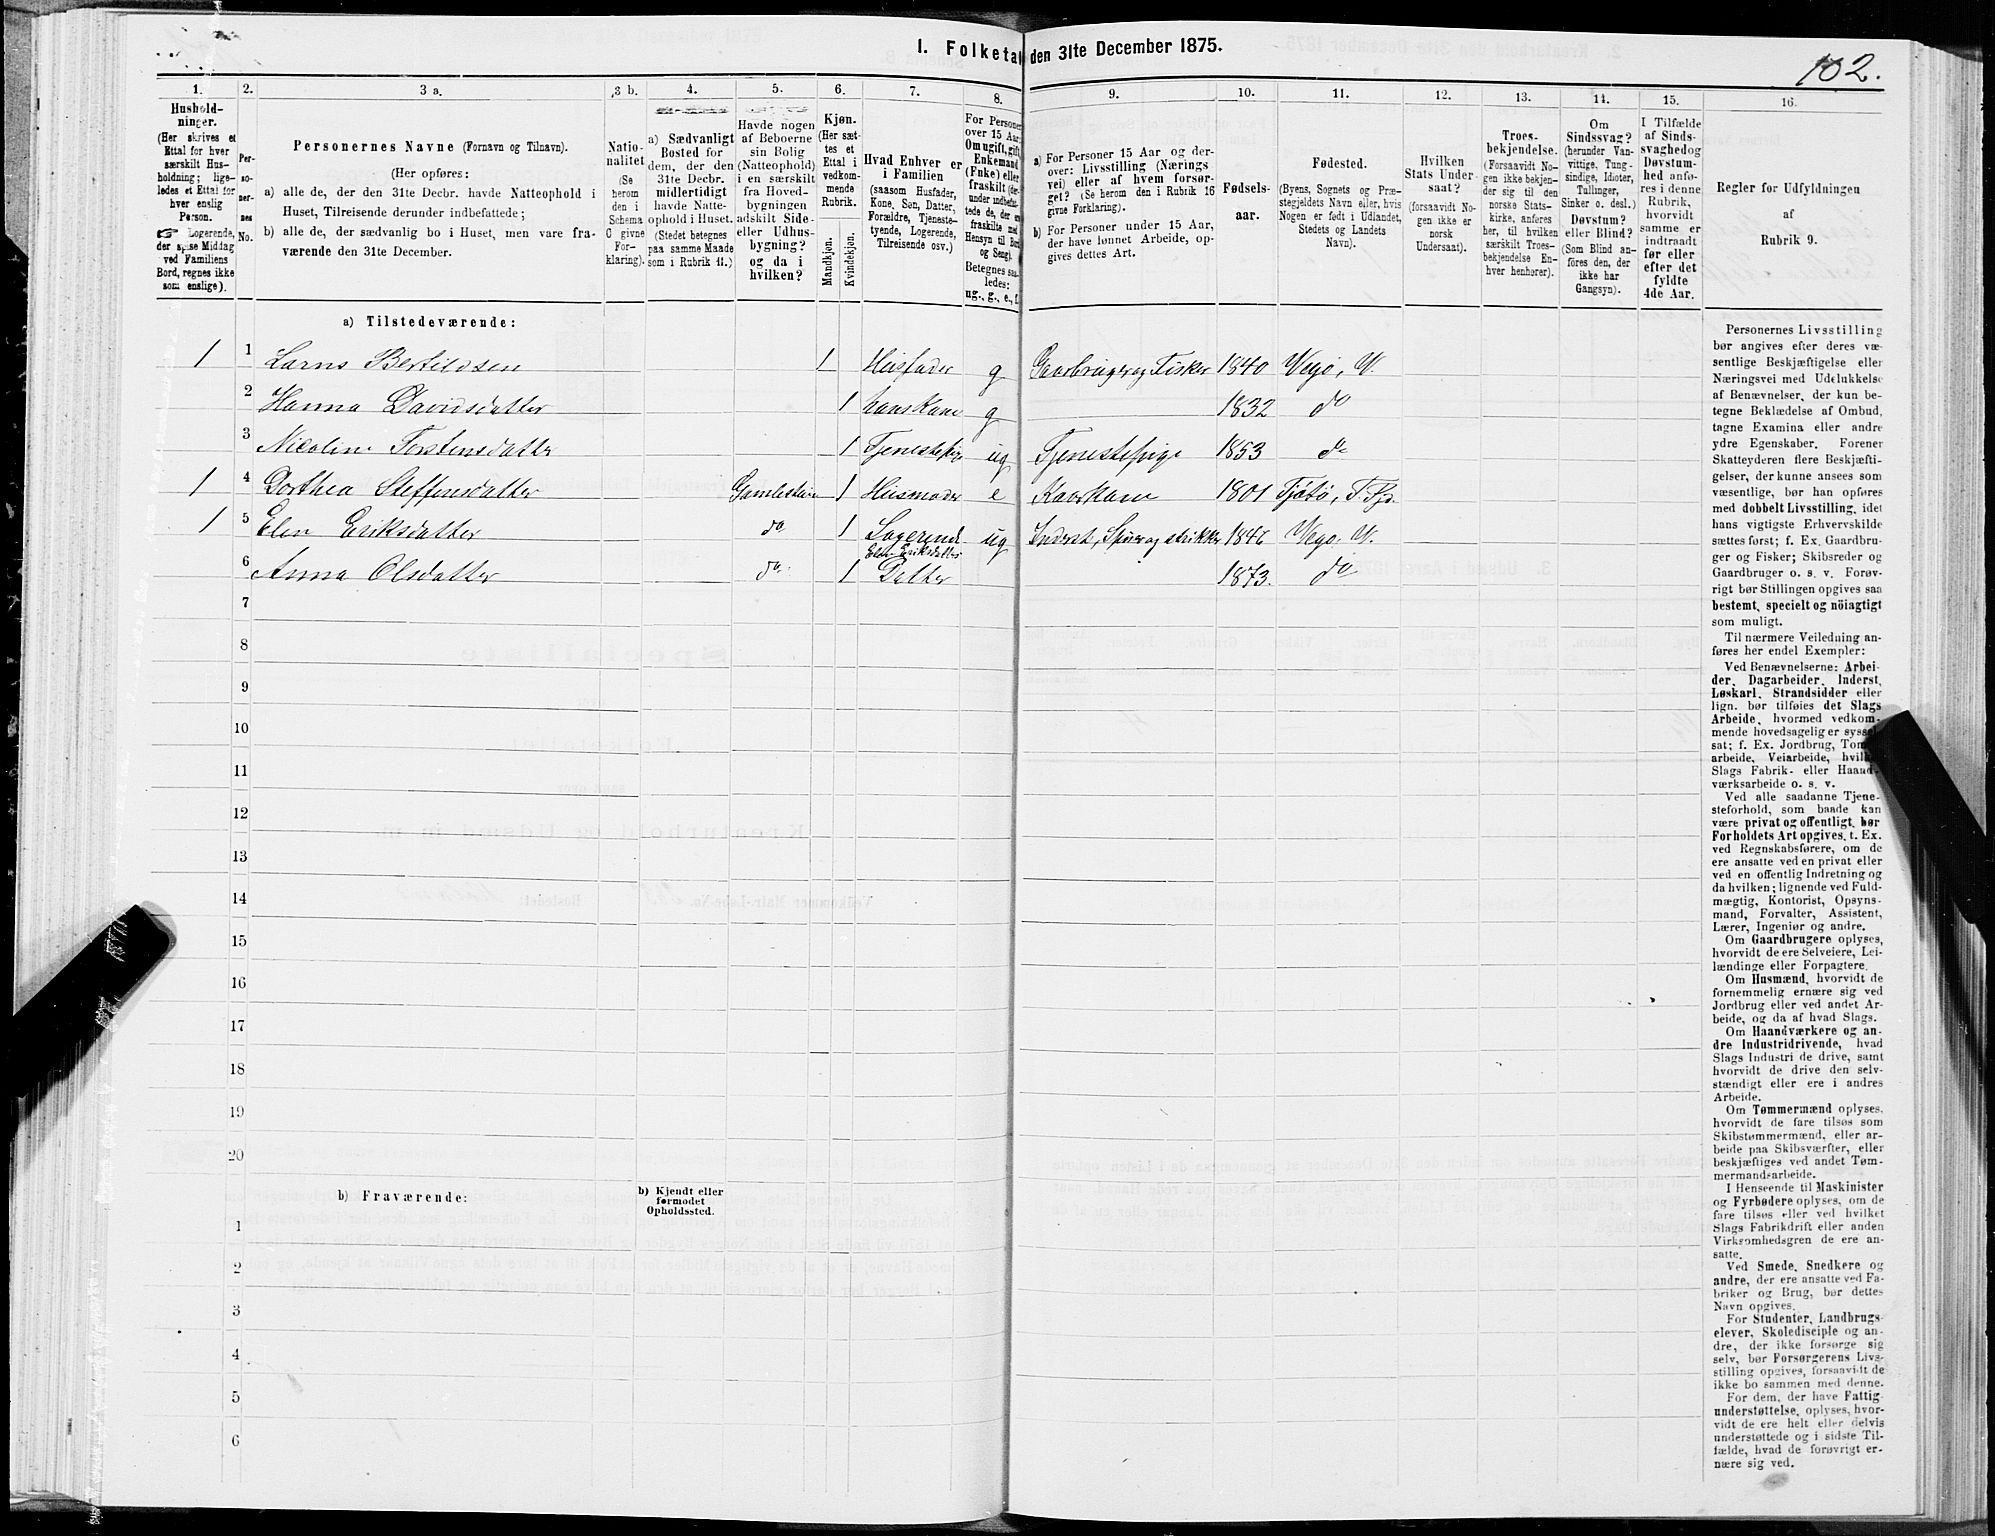 1. Folketal den 31te December 1875.
102.
1.
2.
3 a.
3 b.
4.
5.
6.
7.
8.
9.
10.
11.
12.
13.
14.
15.
16.
Hushold-
ninger.
(Her skrives et
Ettal for hver
særskilt Hus-
holdning; lige-
ledes et Ettal for
hver enslig
Person.
☞ Logerende,
der spise Middag
ved Familiens
Bord, regnes ikke
som enslige).
Per-
so-
ner-
nes
No.
Personernes Navne (Fornavn og Tilnavn).
(Her opføres:
a) alle de, der den 31te Decbr. havde Natteophold i
Huset, Tilreisende derunder indbefattede;
b) alle de, der sædvanlig bo i Huset, men vare fra-
værende den 31te December.
Natio-
nalitet
(Se
herom
den i
Schema
C givne
For-
klaring).
a) Sædvanligt
Bosted for
dem, der den
31te Decbr.
midlertidigt
havde Natte-
ophold i Huset.
(Stedet betegnes
paa samme Maade
som i Rubrik 11.)
Havde nogen
af Beboerne
sin Bolig
(Natteophold)
i en særskilt
fra Hoved-
bygningen
adskilt Side-
eller Udhus-
bygning?
og da i
hvilken?
Kjøn.
(Her sæt-
tes et
Ettal i
vedkom-
mende
Rubrik.
Mandkjøn.
Kvindekjøn.
Hvad Enhver er
i Familien
(saasom Husfader,
Kone, Søn, Datter,
Forældre, Tjeneste-
tyende, Logerende,
Tilreisende osv.)
For Personer
over 15 Aar:
Om ugift, gift,
Enkemand
(Enke) eller
fraskilt (der-
under indbefat-
tede de, der ere
fraskilte med
Hensyn til Bord
og Seng).
Betegnes saa-
ledes:
ug., g., e., f.
a) For Personer 15 Aar og der-
over: Livsstilling (Nærings
vei) eller af hvem forsør-
get? (Se herom den i Rubrik 16
givne Forklaring).
b) For Personer under 15 Aar,
der have lønnet Arbeide, op-
gives dettes Art.
Fødsels-
aar.
Fødested.
(Byens, Sognets og Præ-
stegjeldets Navn eller, hvis
Nogen er født i Udlandet,
Stedets og Landets
Navn).
Hvilken
Stats Under-
saat?
(forsaavidt No-
gen ikke er
norsk
Undersaat).
Troes-
bekjendelse.
(Forsaavidt No-
gen ikke bekjen-
der sig til den
norske Stats-
kirke, anføres
her, til hvilken
særskilt Troes-
bekjendelse En-
hver henhører).
Om
Sindssvag?
(herunder Van-
vittige, Tung-
sindige, Idioter,
Tullinger,
Sinker o. desl.)
Døvstum?
eller Blind?
(Som Blind an-
føres den, der
ikke har
Gangsyn).
I Tilfælde
af Sinds-
svaghed og
Døvstum-
hed anfø-
res i denne
Rubrik,
hvorvidt
samme er
indtraadt
før eller
efter det
fyldte
4de Aar.
Regler for Udfyldningen
af
Rubrik 9.
a) Tilstedeværende:
1 1 Larns Bertildsen 1 Husfader g Gaarbruger og Fisker 1840 Vegø, V.
2 Hanna Davidsdatter 1 hans Kone g 1832 do
3 Nicoline Torstensdatter 1 Tjenestepige ug Tjenestepige 1853 do
1 4 Dorthea Steffensdatter Gamlestuen 1 Husmoder e Kaarkone 1801 Tjøtø, T. Pgj.
1 5 Elen Eriksdatter do 1 Logerende ug Inderst, Spin og strikker 1846 Vegø. V.
Elen Eriksdatter
6 Anna Olsdatter do 1 Datter 1873. do
7
8
9
10
11
12
13
14
15
16
17
18
19
20
b) Fraværende:
b) Kjendt eller
formodet
Opholdssted.
1
2
3
4
5
6
Personernes Livsstilling
bør angives efter deres væ-
sentlige Beskjæftigelse eller
Næringsvei med Udelukkelse
af Benævnelser, der kun be-
tegne Beklædelse af Ombud,
tagne Examina eller andre
ydre Egenskaber. Forener
Skatteyderen flere Beskjæfti-
gelser, der kunne ansees som
væsentlige, bør han opføres
med dobbelt Livsstilling, idet
hans vigtigste Erhvervskilde
sættes først; f. Ex. Gaardbru-
ger og Fisker; Skibsreder og
Gaardbruger o. s. v. Forøv-
rigt bør Stillingen opgives saa
bestemt, specielt og nöiagtigt
som muligt.
Til nærmere Veiledning an-
føres her endel Exempler:
Ved Benævnelserne: Arbei-
der, Dagarbeider, Inderst,
Løskarl, Strandsidder eller
lign. bør tilføies det Slags
Arbeide, hvormed vedkom-
mende hovedsagelig er syssel-
sat; f. Ex. Jordbrug, Tom-
arbeide, Veiarbeide, hvilket
Slags Fabrik- eller Haand-
værksarbeide o. s. v.
Ved alle saadanne Tjene-
steforhold, som baade kan
være privat og offentligt, bør
Forholdets Art opgives, t. Ex.
ved Regnskabsførere, om de
ere ansatte ved en privat eller
ved en offentlig Indretning og
da hvilken; lignende ved Fuld-
mægtig, Kontorist, Opsyns-
mand, Forvalter, Assistent,
Lærer, Ingeniør og andre.
Om Gaardbrugere oplyses,
hvorvidt de ere Selveiere, Lei-
lændinge eller Forpagtere.
Om Husmænd, hvorvidt de
fornemmelig ernære sig ved
Jordbrug eller ved andet Ar-
beide, og da af hvad Slags.
Om Haandværkere og an-
dre Industridrivende, hvad
Slags Industri de drive, samt
hvorvidt de drive den selv-
stændigt eller ere i andres
Arbeide.
Om Tømmermænd oplyses,
hvorvidt de fare tilsøs som
Skibstømmermænd, eller ar-
beide paa Skibsværfter, eller
beskjæftiges ved andet Tøm-
mermandsarbeide.
I Henseende til Maskinister
og Fyrbødere oplyses, om de
fare tilsøs eller ved hvilket
Slags Fabrikdrift eller anden
Virksomhedsgren de ere an-
satte.
Ved Smede, Snedkere og
andre, der ere ansatte ved Fa-
briker og Brug, bør dettes
Navn opgives.
For Studenter, Landbrugs-
elever, Skoledisciple og an-
dre, der ikke forsørge sig
selv, bør Forsørgerens Livs-
stilling opgives, forsaavidt de
ikke bo sammen med denne.
For dem, der have Fattig-
understøttelse, oplyses, hvor-
vidt de ere helt eller delvis
understøttede og i sidste Til-
fælde, hvad de forøvrigt er-
nære sig ved.